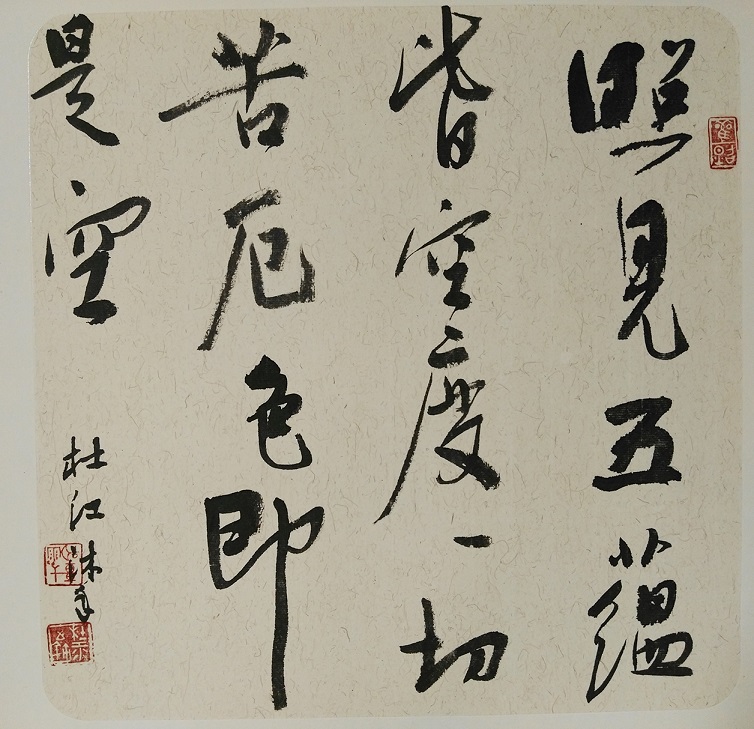 照見五蘊
皆空度一切
苦厄色即
是空
杜江沐手